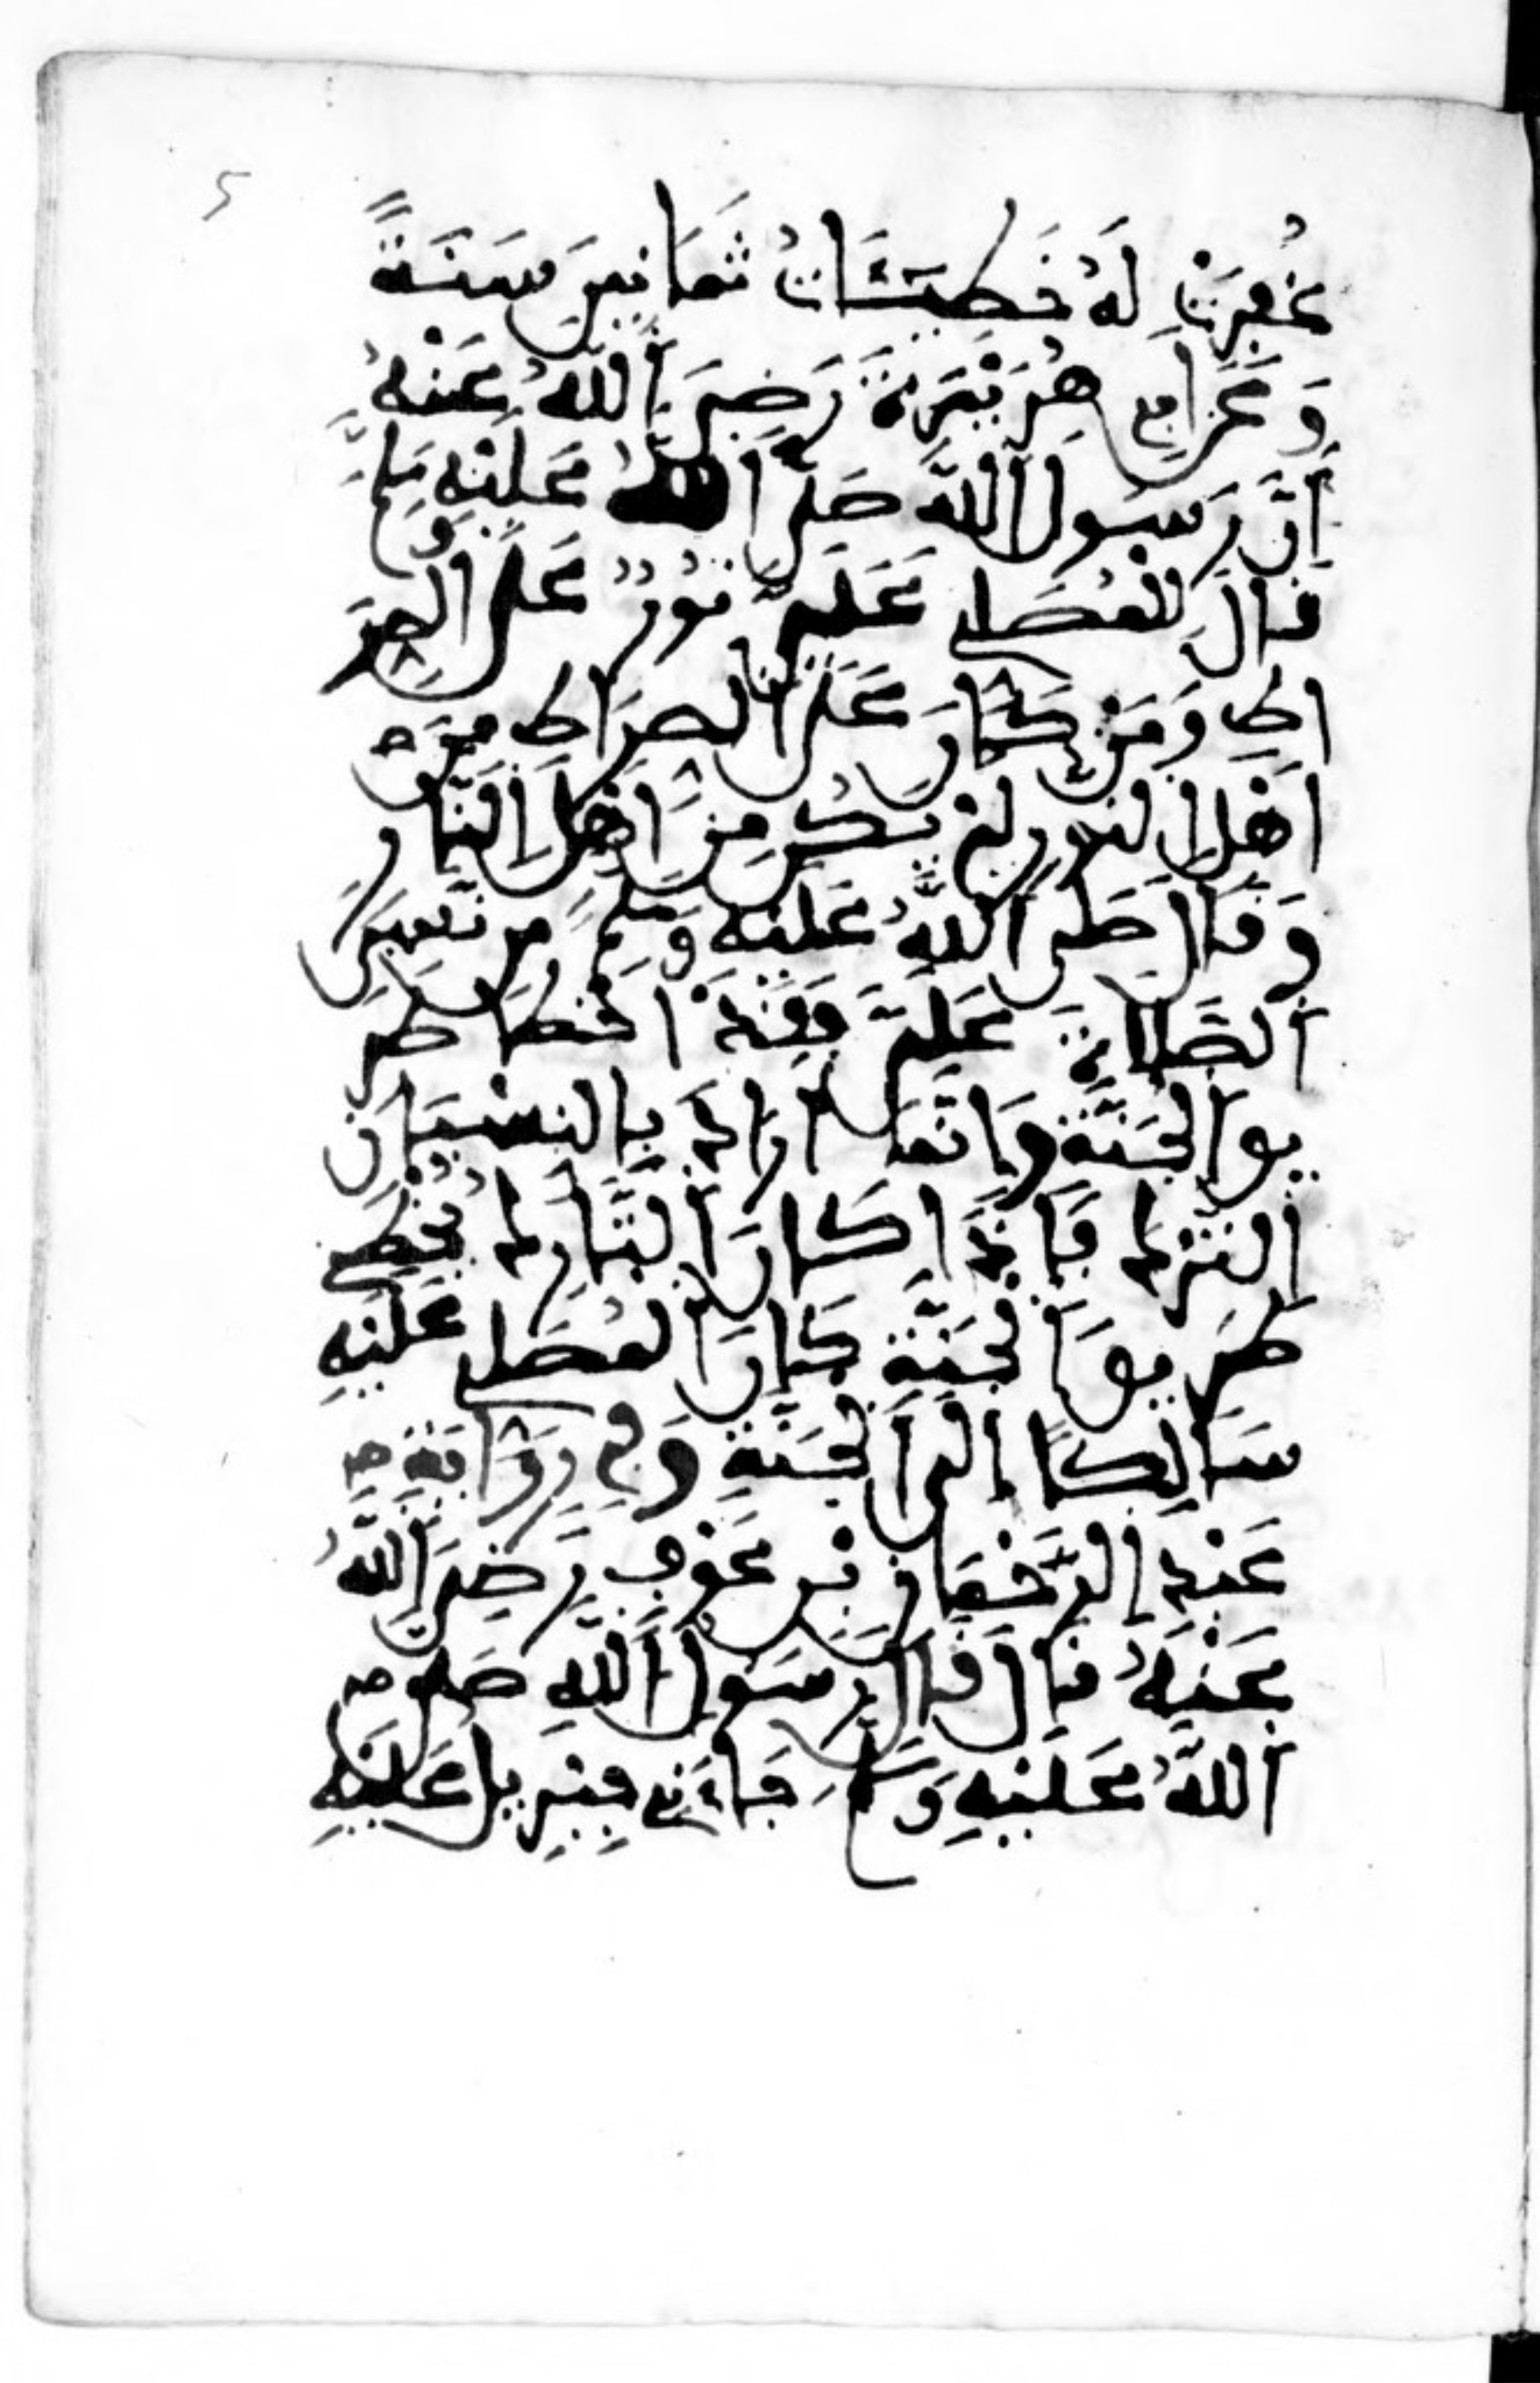 غُفِرَتْ لَهُ خَطِيئَاتُ ثَمَانِينَ سَنَةً
وَعَنْ أَبِي هُرَيْرَةَ رَضِيَ اللَّهُ عَنْهُ
أَنَّ رَسُولَ اللَّهِ صَلَّى اللَّهُ عَلَيْهِ وَسَلَّمَ
قَالَ لِلْمُصَلِّي عَلَيَّ نُورٌ عَلَى الصِّرَ
اطِ وَمَنْ كَانَ عَلَى الصِّرَاطِ مِنْ
أَهْلِ النُّورِ لَمْ يَكُنْ مِنْ أَهْلِ النَّارِ
وَقَالَ صَلَّى اللَّهُ عَلَيْهِ وَسَلَّمَ مَنْ نَسِيَ
الصَّلَاةَ عَلَيَّ فَقَدْ أَخْطَأَ طَرِ
يقَ الْجَنَّةِ وَإِنَّمَا أَرَادَ بِالنِّسْيَانِ
التَّرْكَ فَإِذَا كَانَ التَّارِكُ يُخْطِئُ
طَرِيقَ الْجَنَّةِ كَانَ الْمُصَلِّي عَلَيْهِ
سَالِكًا إِلَى الْجَنَّةِ وَفِي رِوَايَةِ
عَبْدِ الرَّحْمَانِ بْنِ عَوْفٍ رَضِيَ اللَّهُ
عَنْهُ قَالَ قَالَ رَسُولُ اللَّهِ صَلَّى
اللَّهُ عَلَيْهِ وَسَلَّمَ جَاءَنِي جِبْرِيلُ عَلَيْهِ